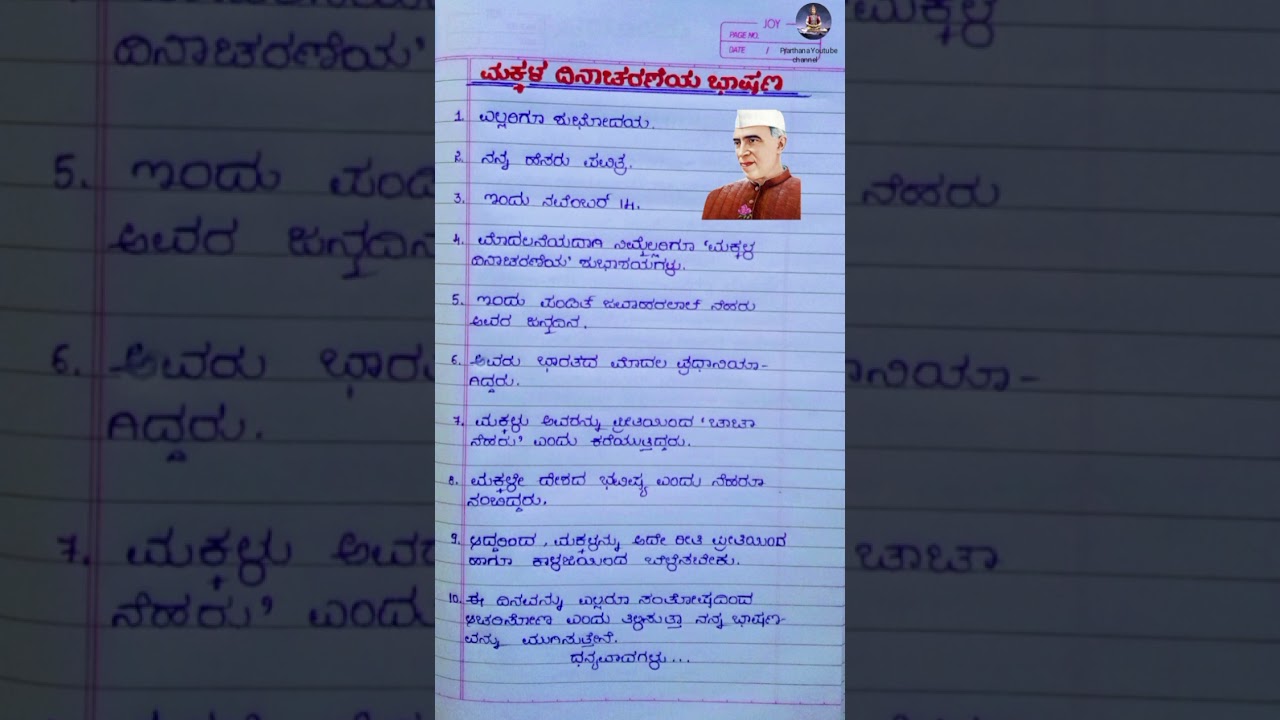 JOY
PAGE NO.
DATE /
Prarthana Youtube
channel
ಮಕ್ಕಳ ದಿನಾಚರಣೆಯ ಭಾಷಣ
1. ಎಲ್ಲರಿಗೂ ಶುಭೋದಯ.
2. ನನ್ನ ಹೆಸರು ಪವಿತ್ರ.
3. ಇಂದು ನವೆಂಬರ್ 14.
4. ಮೊದಲನೆಯದಾಗಿ ನಿಮ್ಮೆಲ್ಲರಿಗೂ 'ಮಕ್ಕಳ
ದಿನಾಚರಣೆಯ' ಶುಭಾಶಯಗಳು.
5. ಇಂದು ಪಂಡಿತ್ ಜವಾಹರಲಾಲ್ ನೆಹರು
ಅವರ ಜನ್ಮದಿನ.
6. ಅವರು ಭಾರತದ ಮೊದಲ ಪ್ರಧಾನಿಯಾ-
ಗಿದ್ದರು.
7. ಮಕ್ಕಳು ಅವರನ್ನು ಪ್ರೀತಿಯಿಂದ 'ಚಾಚಾ
ನೆಹರು' ಎಂದು ಕರೆಯುತ್ತಿದ್ದರು.
8. ಮಕ್ಕಳೇ ದೇಶದ ಭವಿಷ್ಯ ಎಂದು ನೆಹರೂ
ನಂಬಿದ್ದರು.
9. ಆದ್ದರಿಂದ, ಮಕ್ಕಳನ್ನು ಅದೇ ರೀತಿ ಪ್ರೀತಿಯಿಂದ
ಹಾಗೂ ಕಾಳಜಿಯಿಂದ ಬೆಳೆಸಬೇಕು.
10. ಈ ದಿನವನ್ನು ಎಲ್ಲರೂ ಸಂತೋಷದಿಂದ
ಆಚರಿಸೋಣ ಎಂದು ತಿಳಿಸುತ್ತಾ ನನ್ನ ಭಾಷಣ-
ವನ್ನು ಮುಗಿಸುತ್ತೇನೆ.
ಧನ್ಯವಾದಗಳು...